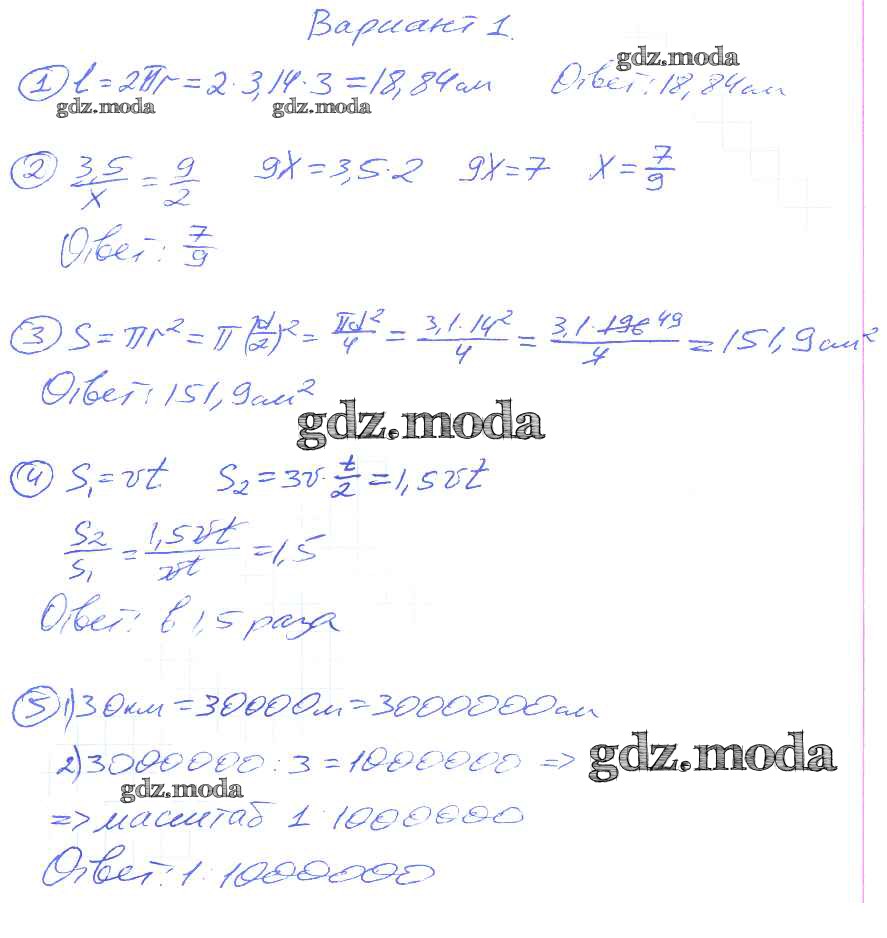 Вариант 1.
gdz.moda
① l = 2πr = 2·3,14·3 = 18,84 см Ответ: 18,84 см
gdz.moda gdz.moda
② 3,5/x = 9/2 9x = 3,5·2 9x = 7 x = 7/9
Ответ: 7/9
③ S = πr² = π(d/2)² = πd²/4 = 3,1·14²/4 = 3,1·196 49/4 = 151,9 см²
Ответ: 151,9 см²
gdz.moda
④ S₁ = vt S₂ = 3v·t/2 = 1,5vt
S₂/S₁ = 1,5vt/vt = 1,5
Ответ: в 1,5 раза
⑤ 1) 30 км = 30000 м = 3000000 см
2) 3000000 : 3 = 1000000 =>
gdz.moda
gdz.moda
=> масштаб 1:1000000
Ответ: 1:1000000